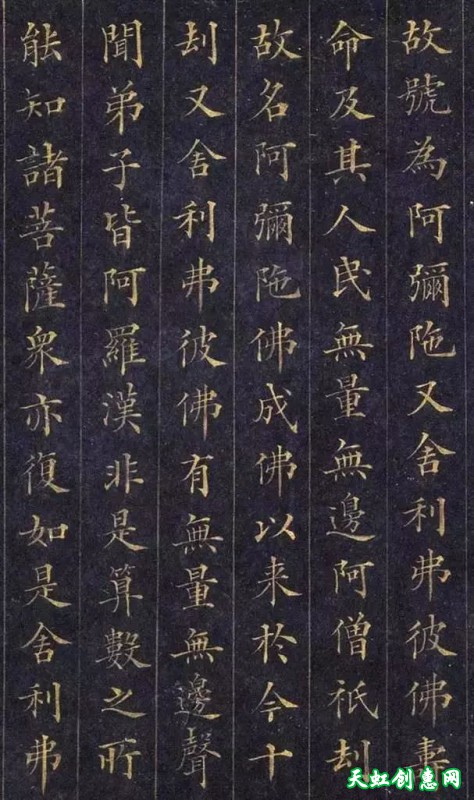 故號為阿彌陁又舍利弗彼佛壽
命及其人民無量無邊阿僧祇刦
故名阿彌陁佛成佛以来於今十
刦又舍利弗彼佛有無量無邊聲
聞弟子皆阿羅漢非是算數之所
能知諸菩薩衆亦復如是舍利弗
天虹创惠网